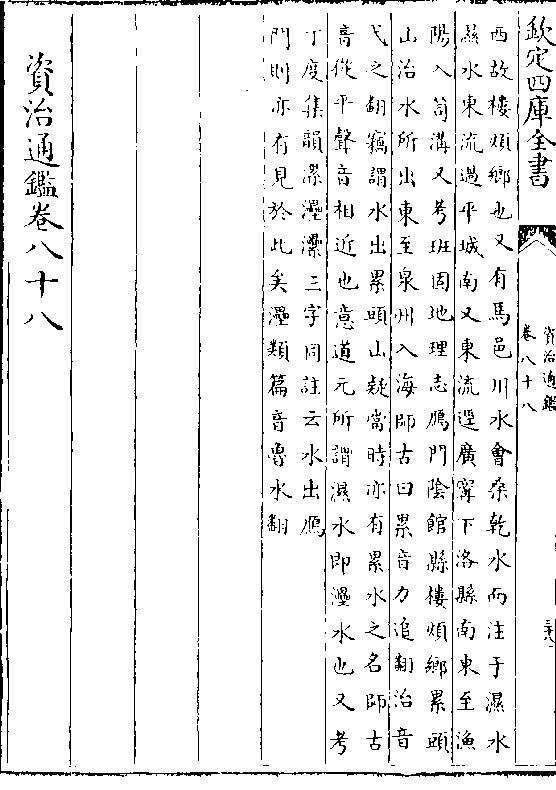 欽定四庫全書
資治通鑑
卷八十八
西故樓煩鄉也又有馬邑川水會桑乾水而注于濕水
濕水東流過平城南又東流逕廣寗下洛縣南東至漁
陽入笥溝又考班固地理志鴈門陰館縣樓煩鄉累頭
山治水所出東至泉州入海師古曰累音力追翻治音
弋之翻竊謂水出累頭山疑當時亦有累水之名師古
音從平聲音相近也意道元所謂濕水即灅水也又考
丁度集韻漯灅灢三字同註云水出鴈
門則亦有見於此矣灅類篇音魯水翻
資治通鑑卷八十八